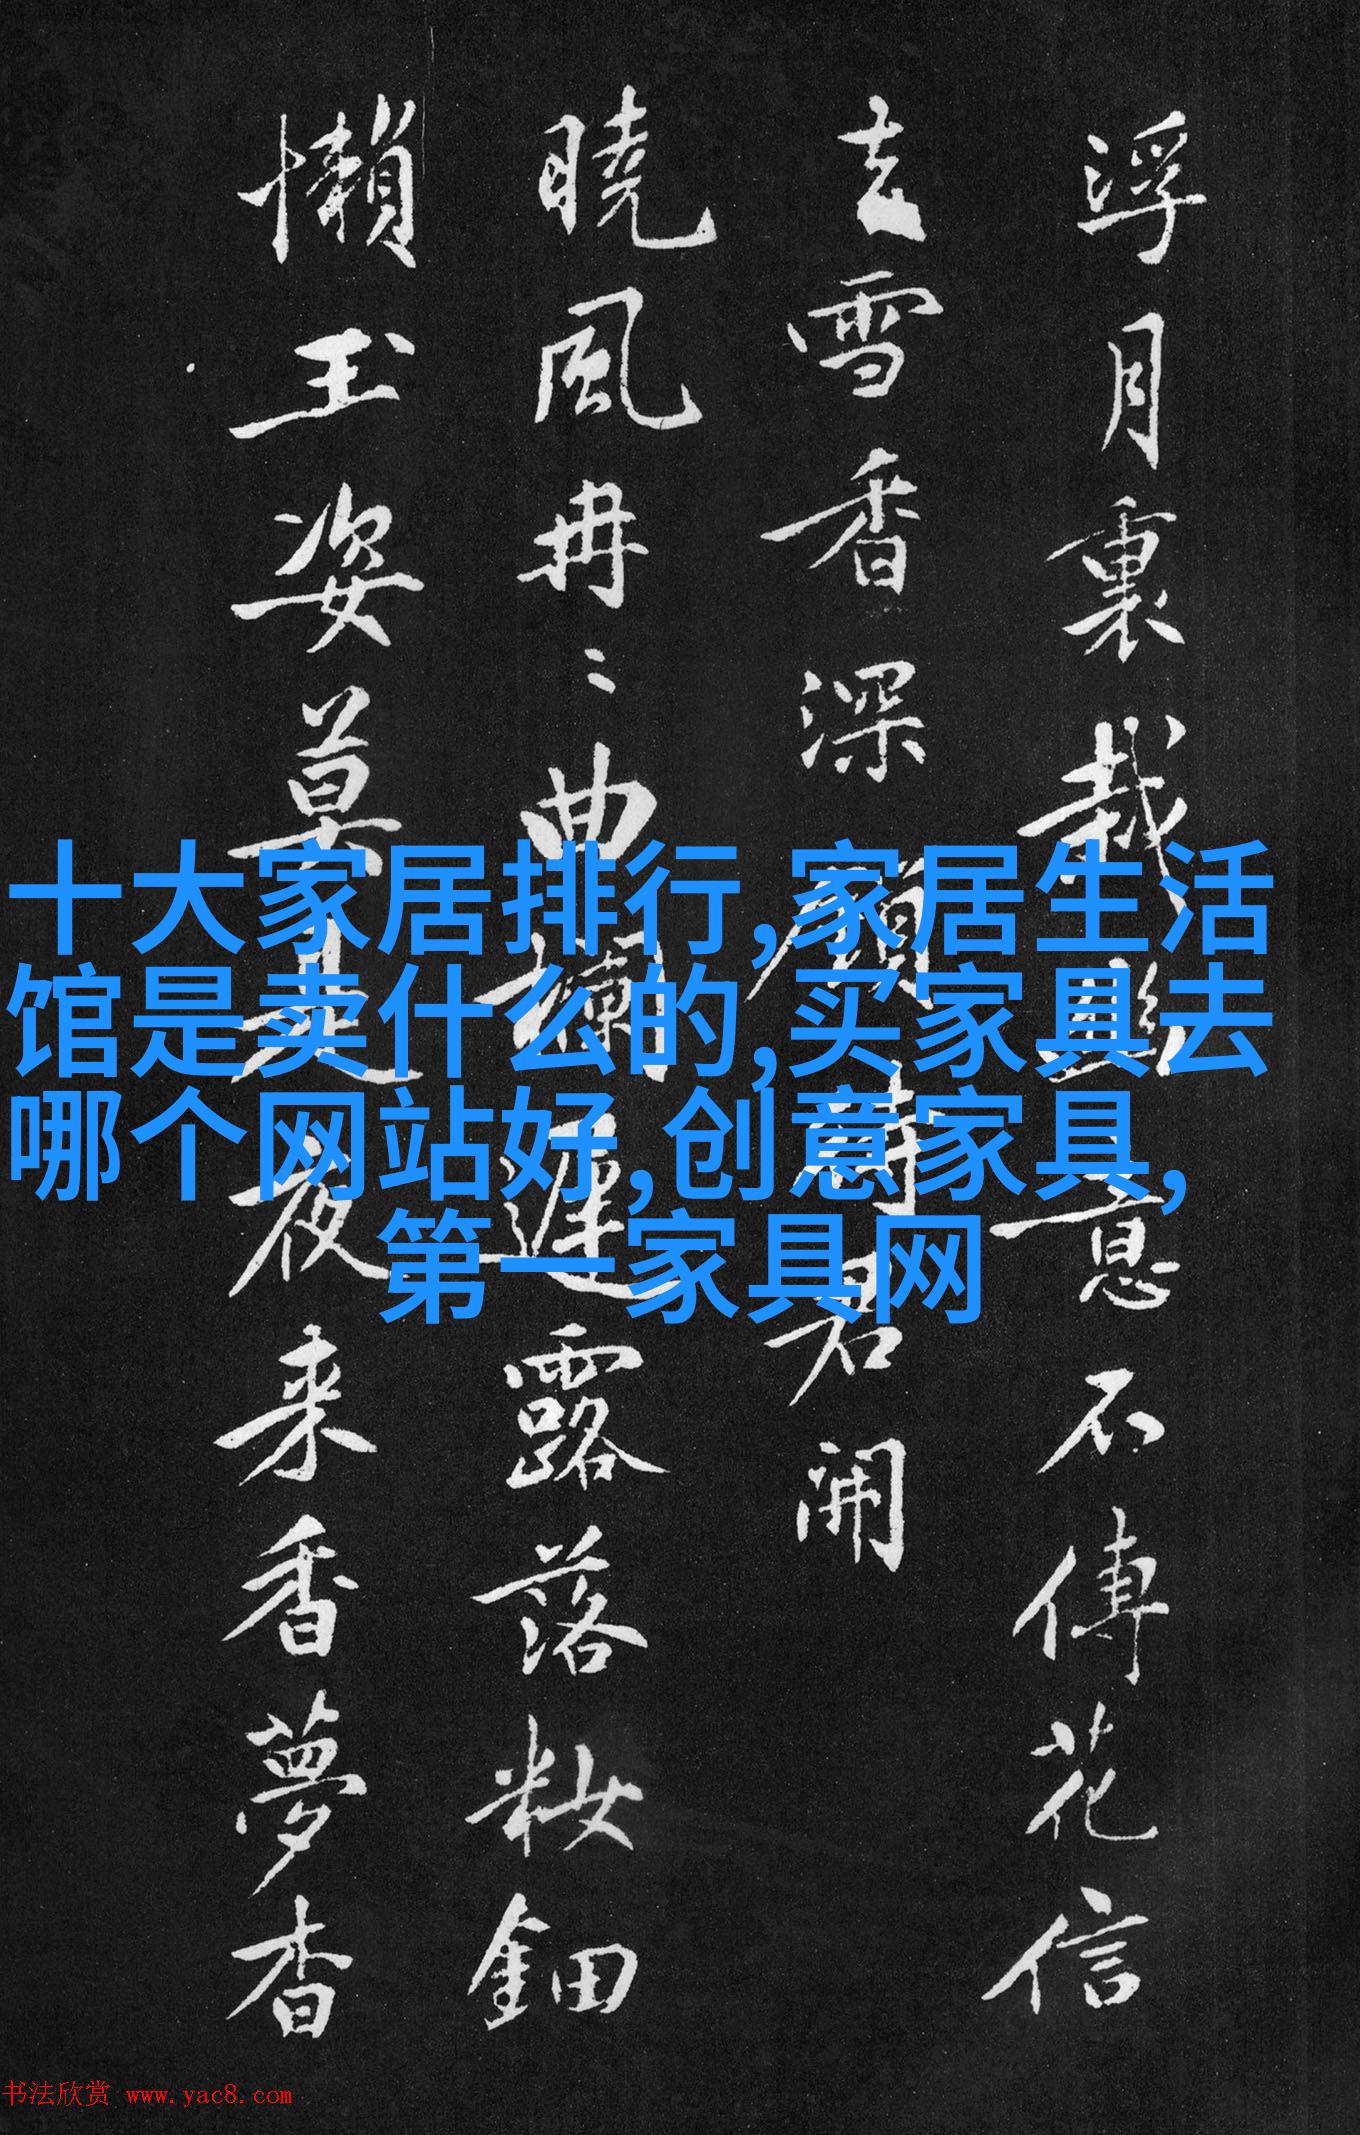 浮月裏栽愁意不傳花信
去雪香深顧時君開
曉風冉〻曲欄遲露落妝鈿
懶玉姿莫是夜来香夢杳
十大家居排行,家居生活
馆是卖什么的,买家具去
哪个网站好,创意家具,
第一家具网
书法欣赏 www.yac8.com